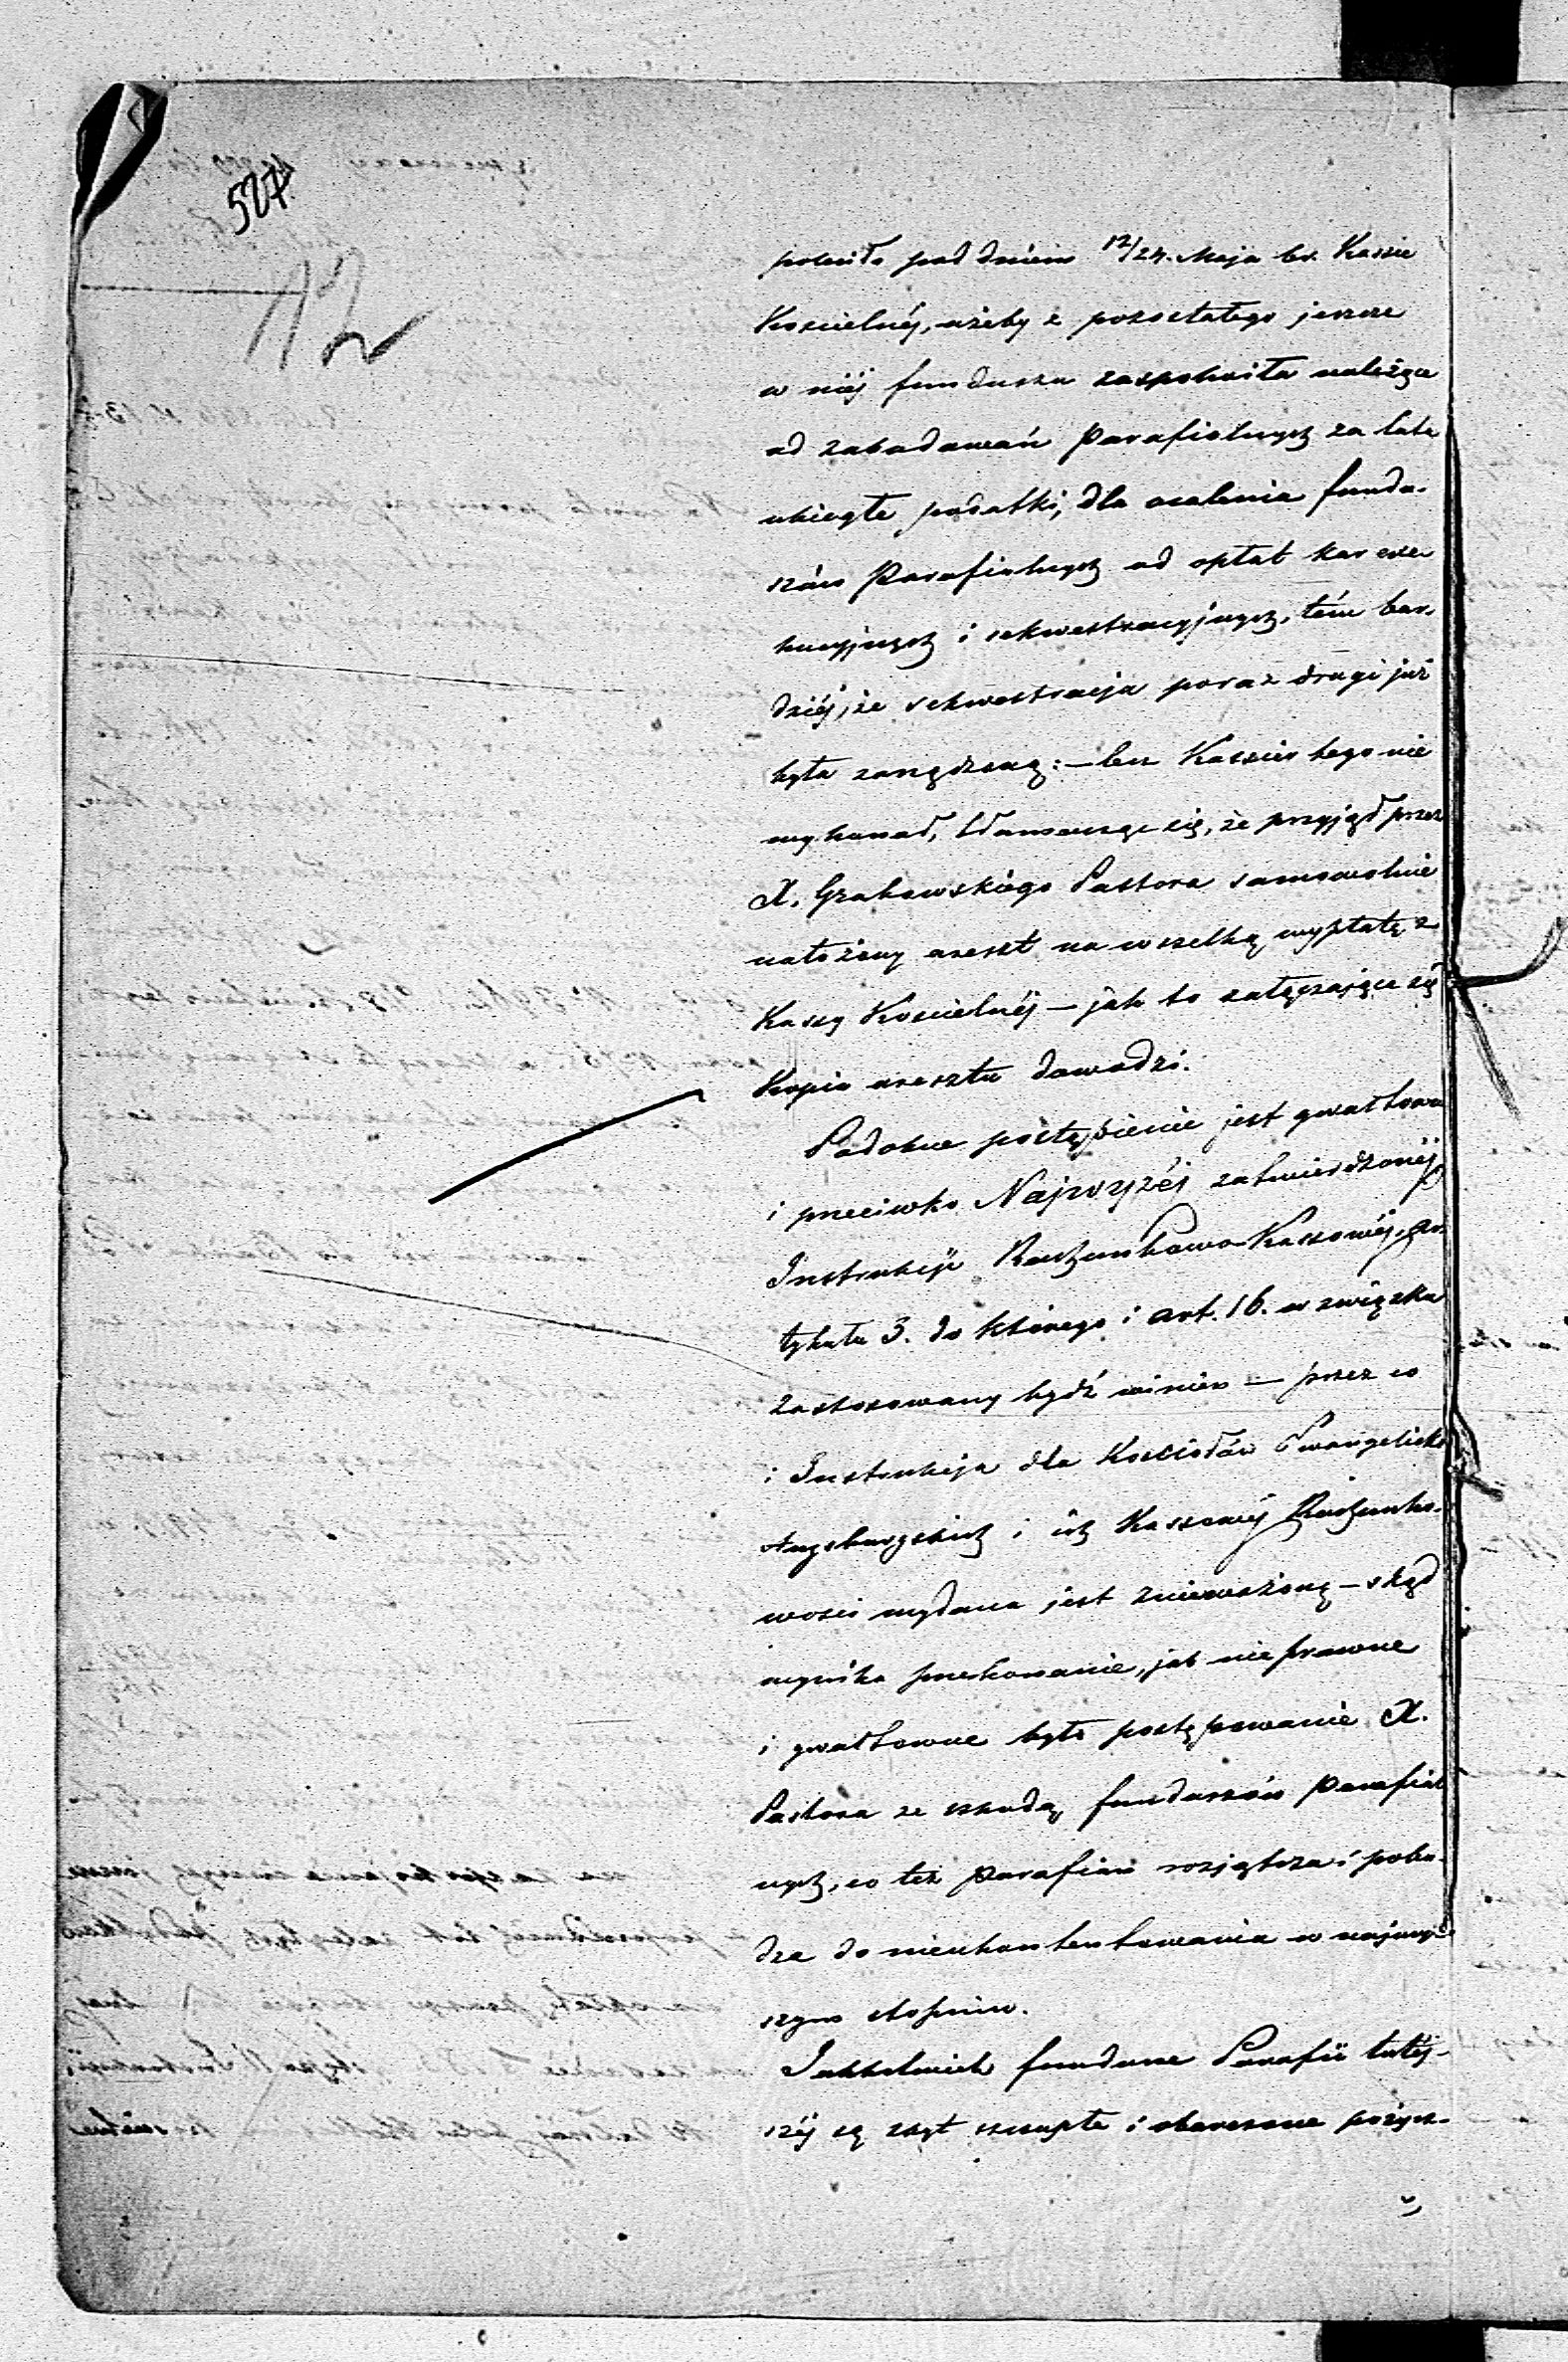 527
poleciło pod dniem 12/24. Maja br. Kassie
Kościelnéj, ażeby z pozostałego jeszcze
w niéj funduszu zaspokoiła należące
od zabudowań Parafialnych za lata
ubiegłe podatki, dla ocalenia fundu-
szów Parafialnych od opłat kar exe-
kucyjnych i sekwestracyjnych, tém bar-
dziéj, że sekwestracja poraz drugi już
była zarządzoną: – lecz Kassier tego nie
wykonał, tłómacząc się, że przyjął przez
X. Grabowskiego Pastora samowolnie
nałożony areszt na wszelką wypłatę z
Kassy Kościelnéj – jak to załączająca się
Kopia aresztu dowodzi.
Podobne postąpienie jest gwałtowne
i przeciwko Najwyżéj zatwierdzonéj
Instrukcji Rachunkowo-Kassowéj, ar-
tykułu 3. do którego i art. 16. w związku
zastosowany bydź winien – przez co
i Instrukcja dla Kościołów Ewangelicko
Augsburgskich i ich Kassowéj Rachunko-
wości wydana jest znieważoną – skąd
wynika przekonanie, jak nieprawne
i gwałtowne było postępowanie X.
Pastora ze szkodą funduszów Parafial
nych, co też Parafian rozjątrza i pobu-
dza do nieukontentowania w najwyż-
szym stopniu.
Jakkolwiek fundusze Parafii tutéj-
széj są zbyt szczupłe i obarczone pożycz-